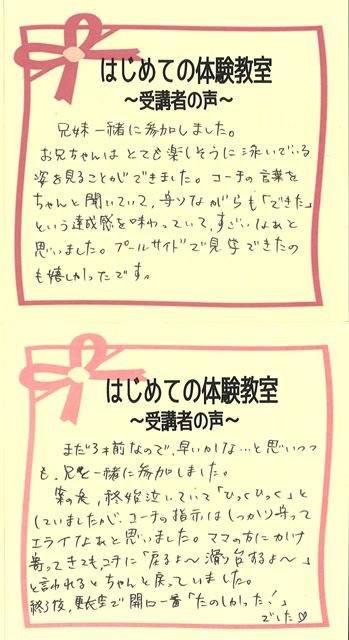 はじめての体験教室
～受講者の声～
兄妹一緒に参加しました。
お兄ちゃんは とても楽しそうに 泳いでいる
姿を見ることができました。コーチの言葉を
ちゃんと聞いていて、 ながらも「できた」
という達成感を味わっていて、すごいなぁと
思いました。プールサイドで見学できたの
も嬉しかったです。
はじめての体験教室
～受講者の声～
まだ3才前なので、早いかな…と思いつつ
も、兄と一緒に参加しました。
案の定、終始泣いていて「ひっくひっく」と
していましたが、コーチの指示はしっかり守って
エライなぁと思いました。ママの方にかけ
寄ってきても、コーチに「戻るよ～滑り台するよ～」
と言われるとちゃんと戻っていました。
終了後、更衣室で開口一番「たのしかった！」
でした♡